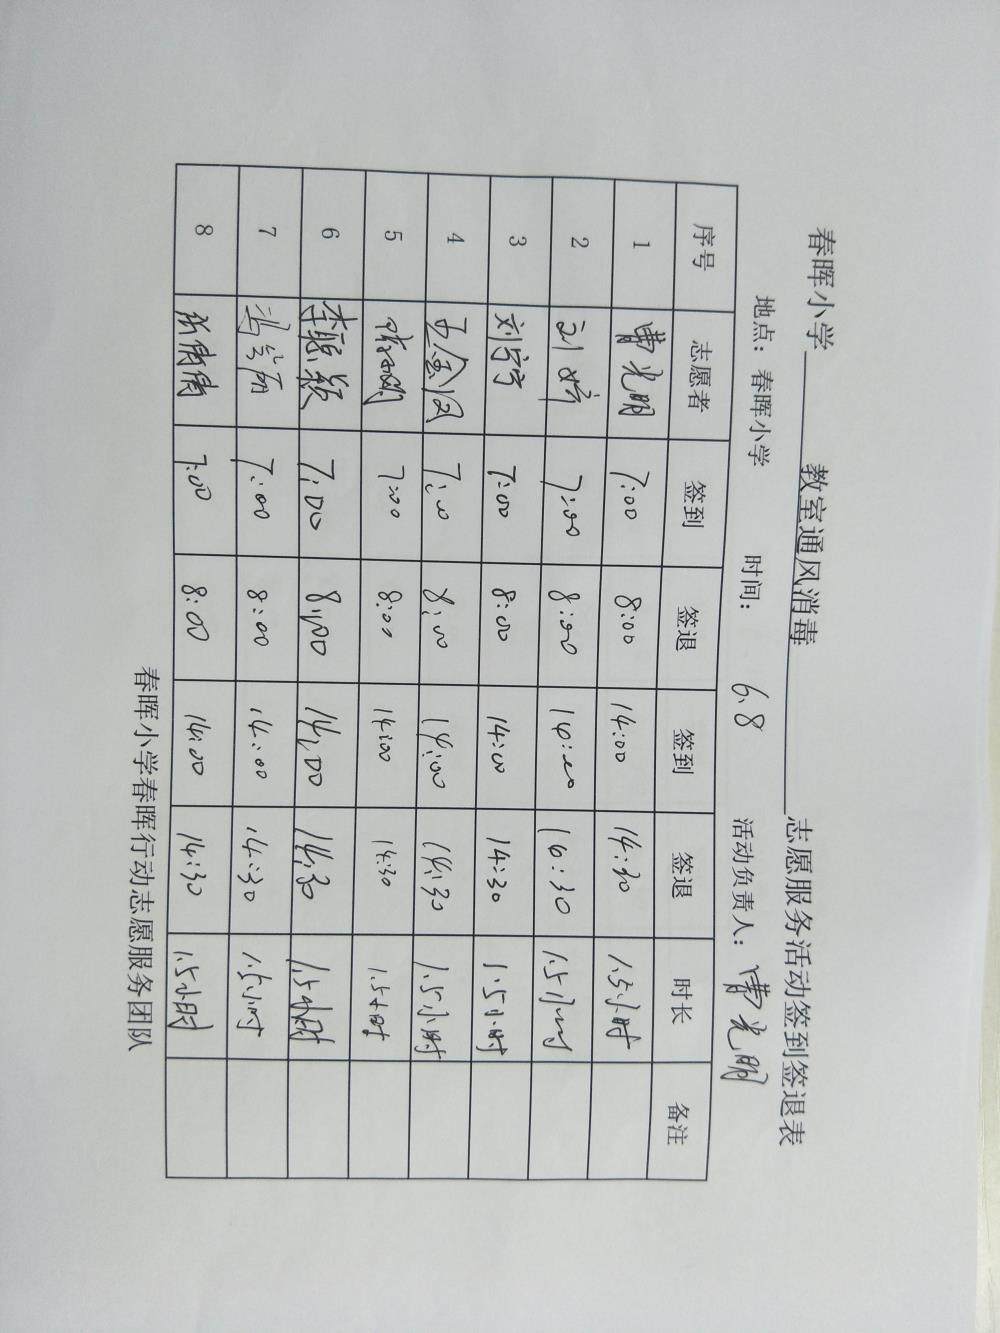 春晖小学 教室通风消毒 志愿服务活动签到签退表
地点：春晖小学 时间： 6.8 活动负责人：曹光明
序号 志愿者 签到 签退 签到 签退 时长 备注
1 曹光明 7:00 8:00 14:00 14:30 1.5小时
2 刘婷 7:00 8:00 14:00 16:30 1.5小时
3 刘宁宁 7:00 8:00 14:00 14:30 1.5小时
4 7:00 8:00 14:00 14:30 1.5小时
5 7:00 8:00 14:00 14:30 1.5小时
6 李聪颖 7:00 8:00 14:00 14:30 1.5小时
7 7:00 8:00 14:00 14:30 1.5小时
8 张倩倩 7:00 8:00 14:00 14:30 1.5小时
春晖小学春晖行动志愿服务团队